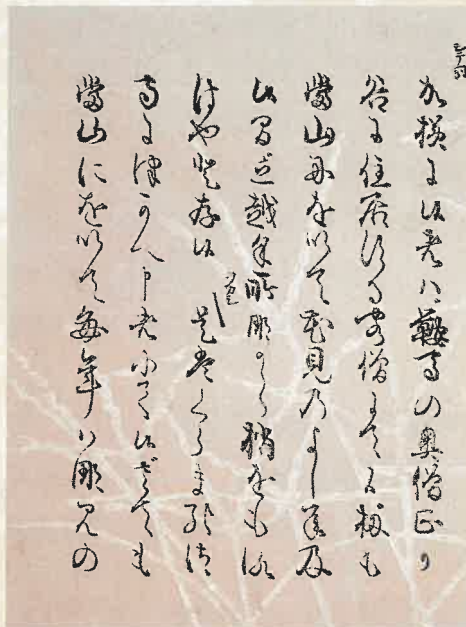 シテ詞
加様に候者ハ鞍馬の奥僧正か
谷に住居する客僧にて候扨も
當山にをいて花見のよし承及
候間立越余所なから梢をも詠
はやと存候 是ハくらまの御
寺につかへ申者にて候さても
當山にをいて毎年の花見の